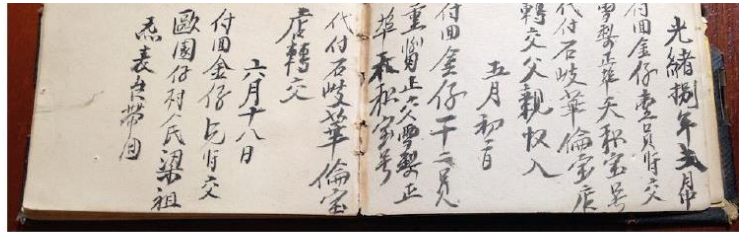 光緒捌年弍月
付回金仔壹員時交
雪梨正埠天和宝号
代付石岐華倫宝店
轉交父親收入
五月初一日
付回金仔十二員
重正交雪梨正
埠和宝号
代付石岐華倫宝
店轉交
六月十八日
付回金仔時交
歐園仔村人民梁祖
表兄帶回